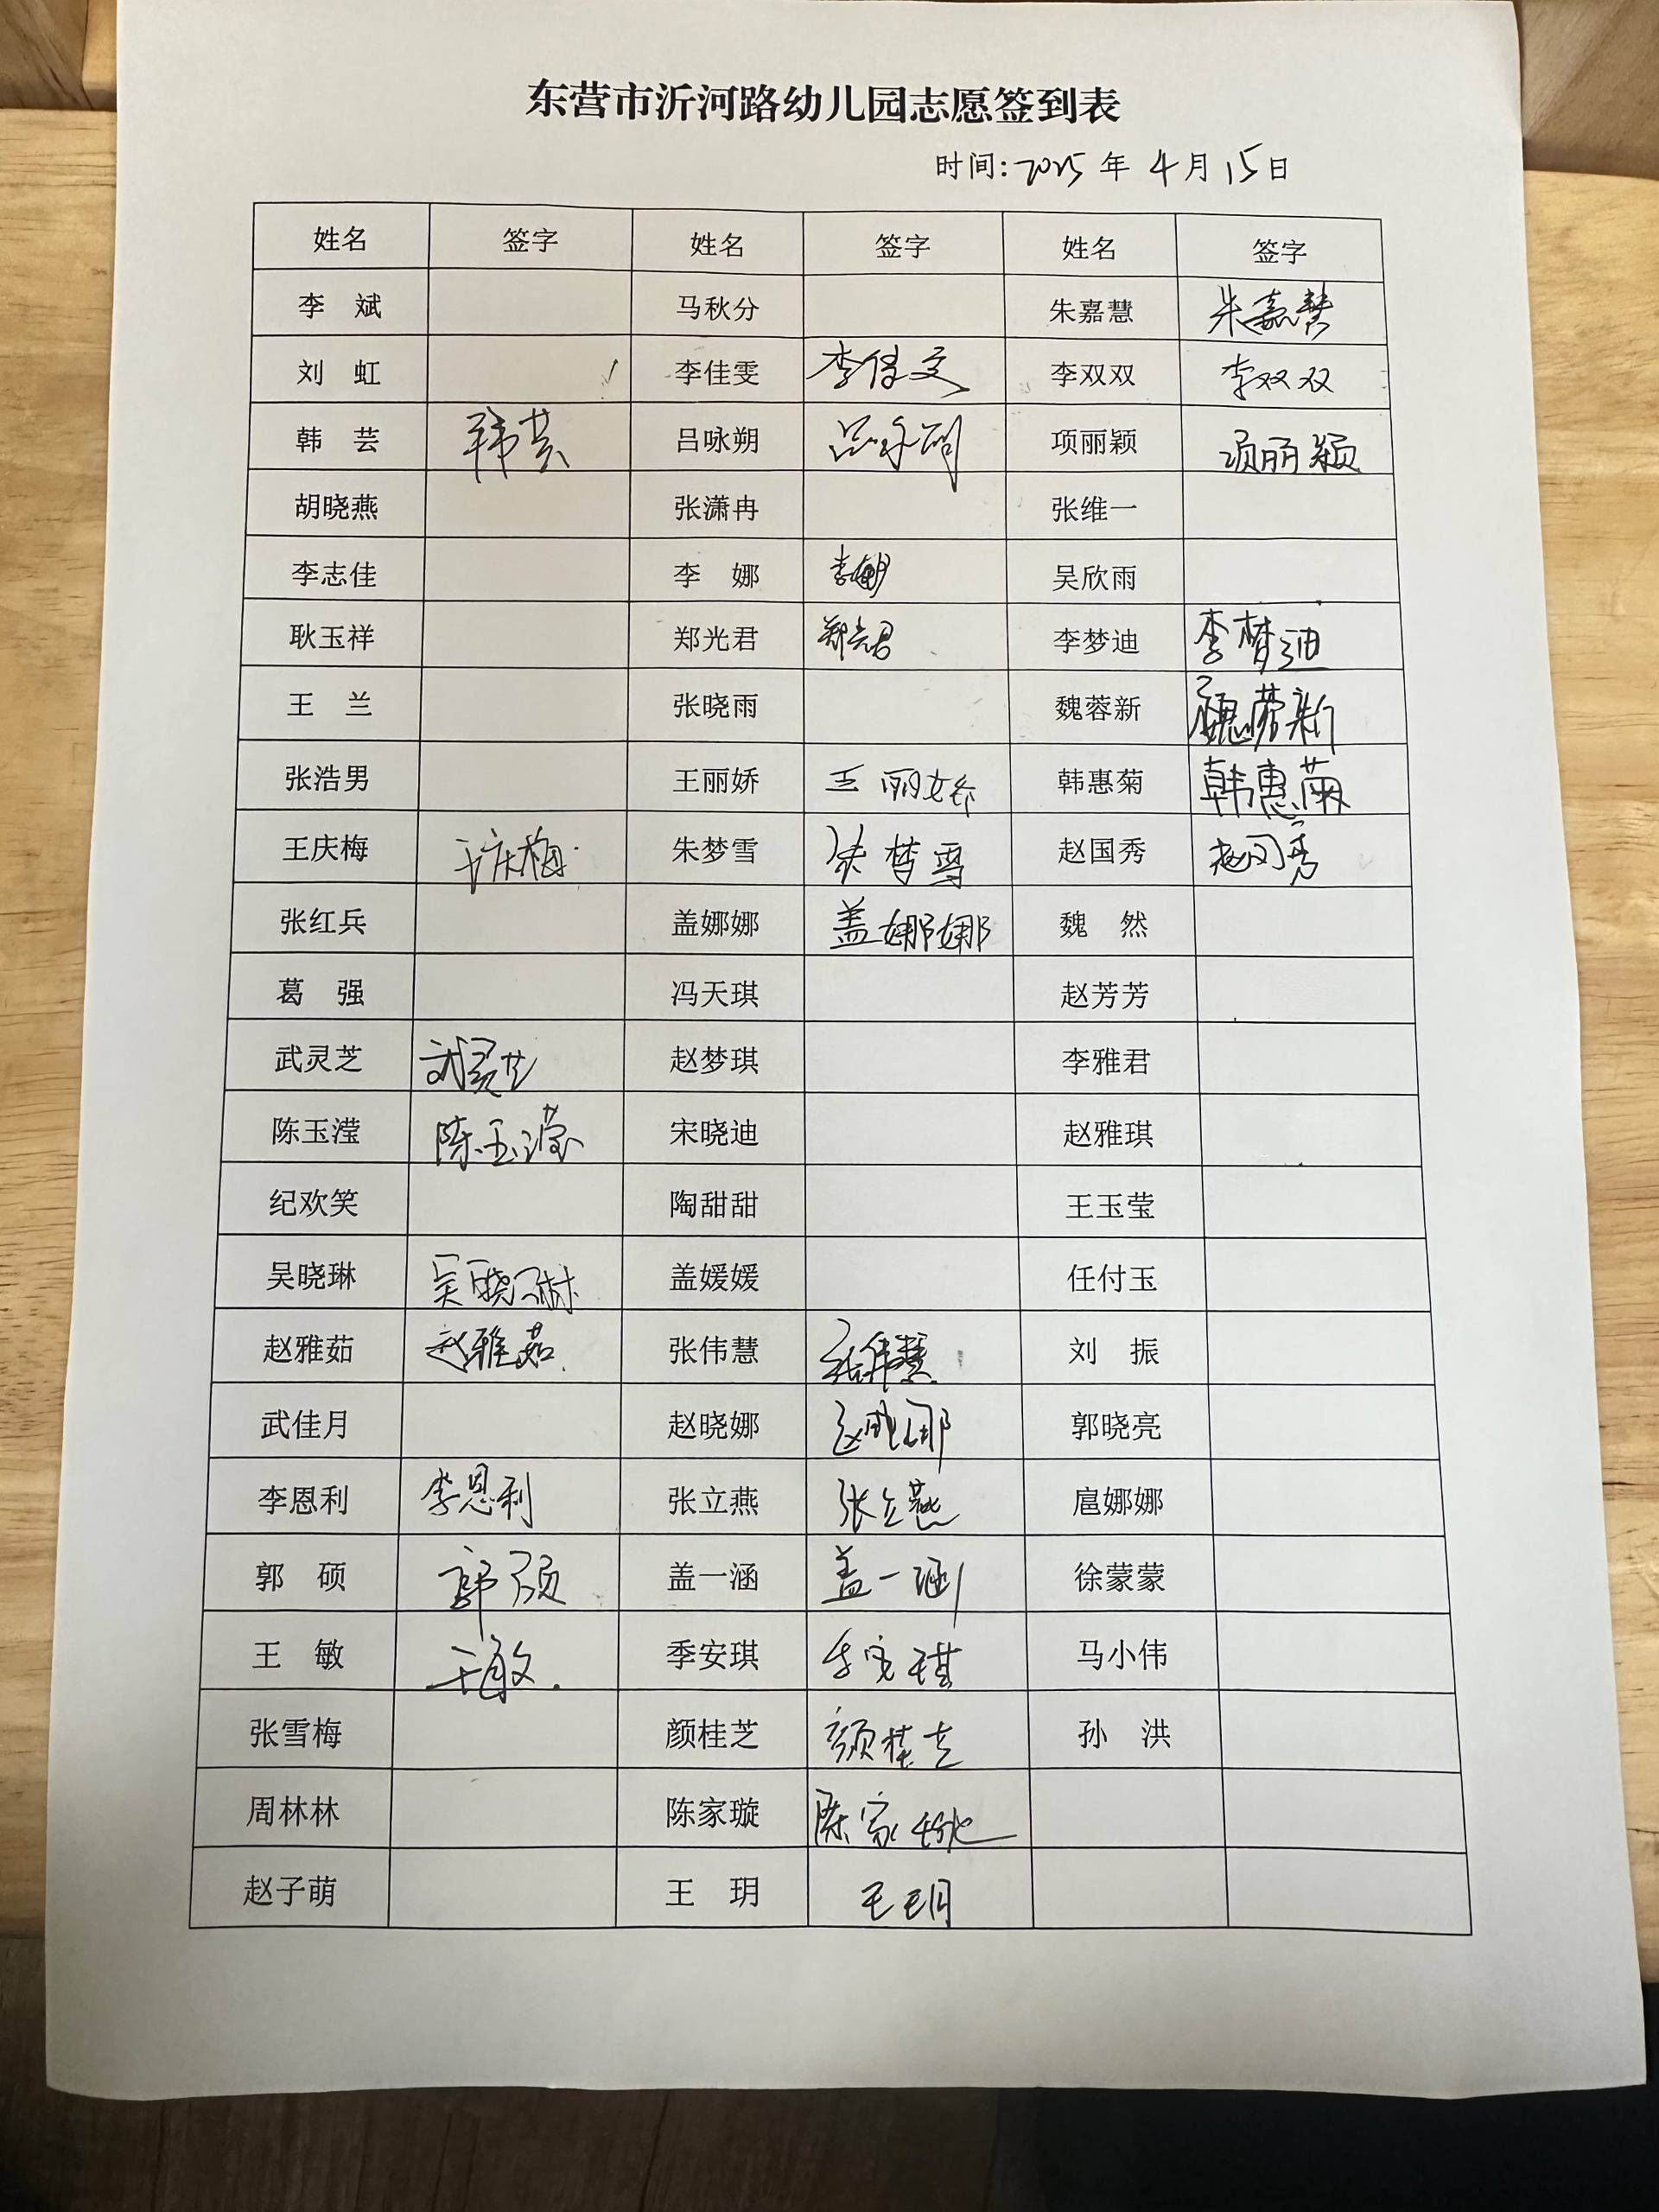 东营市沂河路幼儿园志愿签到表
时间:2025 年 4 月 15 日
姓名 签字 姓名 签字 姓名 签字
李 斌 马秋分 朱嘉慧 朱嘉慧
刘 虹 李佳雯 李佳文 李双双 李双双
韩 芸 韩芸 吕咏朔 吕咏朔 项丽颖 项丽颖
胡晓燕 张潇冉 张维一
李志佳 李 娜 李娜 吴欣雨
耿玉祥 郑光君 郑光君 李梦迪 李梦迪
王 兰 张晓雨 魏蓉新 魏蓉新
张浩男 王丽娇 王丽娇 韩惠菊 韩惠菊
王庆梅 王庆梅 朱梦雪 朱梦雪 赵国秀 赵国秀
张红兵 盖娜娜 盖娜娜 魏 然
葛 强 冯天琪 赵芳芳
武灵芝 武灵芝 赵梦琪 李雅君
陈玉滢 陈玉滢 宋晓迪 赵雅琪
纪欢笑 陶甜甜 王玉莹
吴晓琳 吴晓琳 盖媛媛 任付玉
赵雅茹 赵雅茹 张伟慧 张伟慧 刘 振
武佳月 赵晓娜 赵晓娜 郭晓亮
李恩利 李恩利 张立燕 张立燕 扈娜娜
郭 硕 郭硕 盖一涵 盖一涵 徐蒙蒙
王 敏 王敏 季安琪 季安琪 马小伟
张雪梅 颜桂芝 颜桂芝 孙 洪
周林林 陈家璇 陈家璇
赵子萌 王 玥 王玥